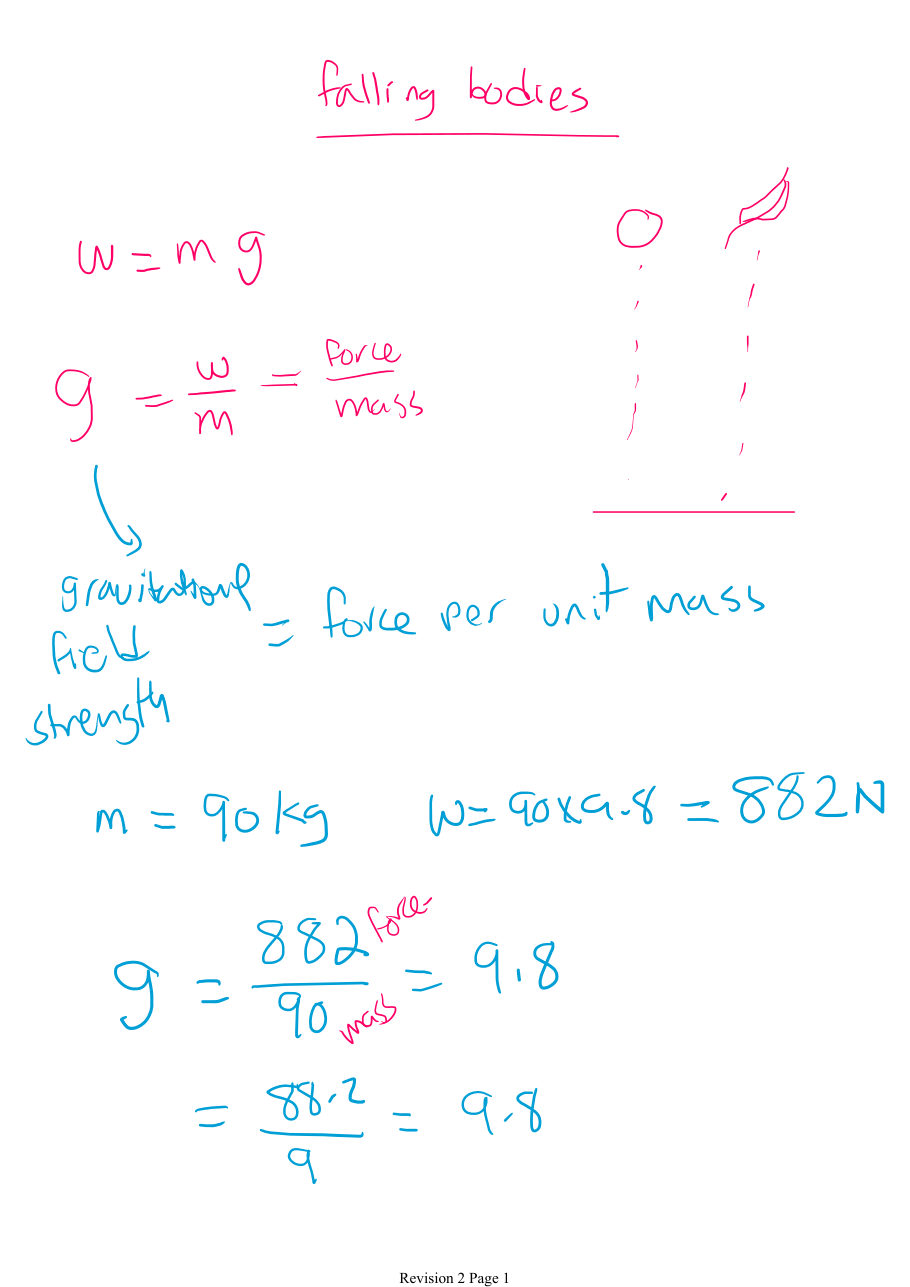 falling bodies
w = m g
g = w/m = force/mass
gravitational
field
strength
= force per unit mass
m = 90 kg    W = 90 x 9.8 = 882 N
g = 882 force / 90 mass = 9.8
= 88.2 / 9 = 9.8
Revision 2 Page 1